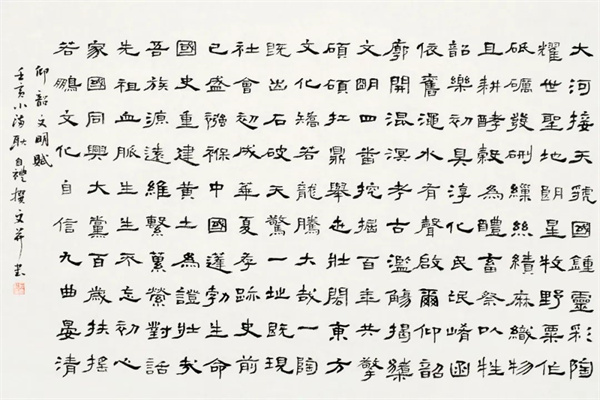 大河接天號國鍾靈彩陶
耀世聖地朗星牧野粟作
砥礪發硎繅絲績麻織物
且耕酵穀為醴畜祭以牲
韶樂初具淳化民氓崤函
依舊澠水有聲啟爾仰韶
廓開混溟考古濫觴揭櫫
文明四耆挖掘百年共擎
碩碩扛鼎舉起壯闊東方
文化矯若龍騰大哉一陶
既出石破天驚一址既現
社會初成華夏孕跡史前
已盛襁褓中國蓬勃生命
國史重建黃土為證壯哉
吾族源遠維繫萬縈對話
先祖血脈生生不忘初心
家國同興大黨百歲扶搖
若鵬文化自信九曲晏清
仰韶文明賦
壬寅小滿耿自禮撰文并書